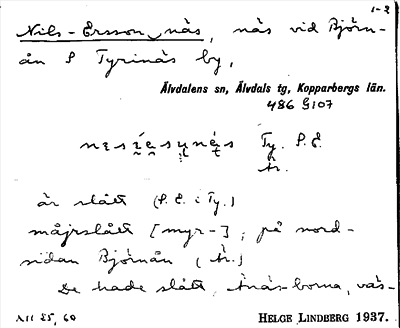 1-2
Nils-Ersson näs, näs vid Björn-
ån S Tyrinäs by,
Älvdalens sn, Älvdals tg, Kopparbergs län.
486 G107
Ty. P. E.
Är.
är slått (P. E. i Ty.)
måjrslått [myr-], på nord-
sidan Björnån (Är.)
De hade slått, Ånäs-borna, väs-
XII 85, 60
HELGE LINDBERG 1937.